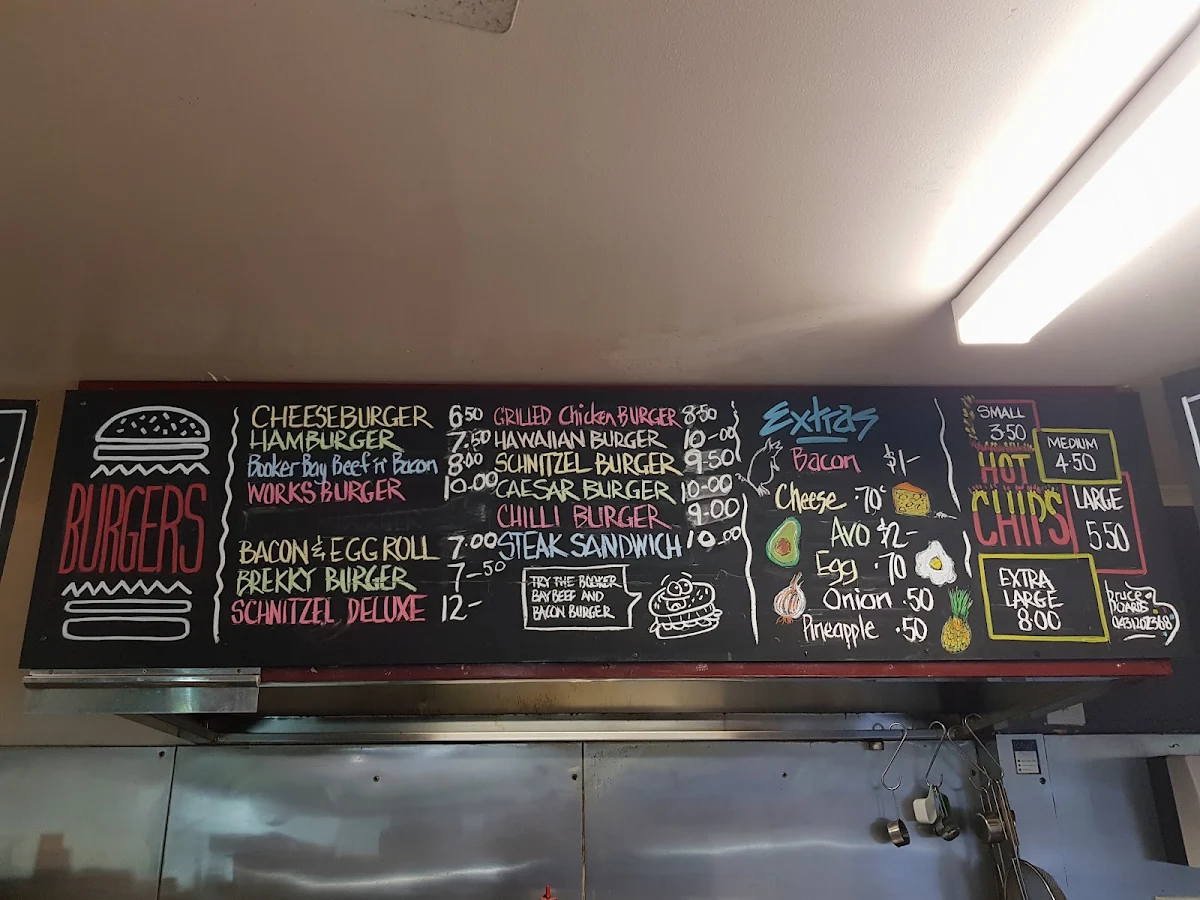 BURGERS
CHEESEBURGER 6 50
HAMBURGER 7.50
Booker Bay Beef 'n' Bacon 8.00
WORKS BURGER 10.00
BACON & EGG ROLL 7.00
BREKKY BURGER 7-50
SCHNITZEL DELUXE 12-
GRILLED ChickEN BURGER 8.50
HAWAIIAN BURGER 10-00
SCHNITZEL BURGER 9-50
CAESAR BURGER 10-00
CHILLI BURGER 9-00
STEAK SANDWICH 10.00
TRY THE BOOKER
BAY BEEF AND
BACON BURGER
Extras
Bacon $1-
Cheese .70c
Avo $2-
Egg .70
Onion .50
Pineapple .50
SMALL
3.50
HOT
CHIPS
MEDIUM
4.50
LARGE
5 50
EXTRA
LARGE
8.00
bruce
BOARDS